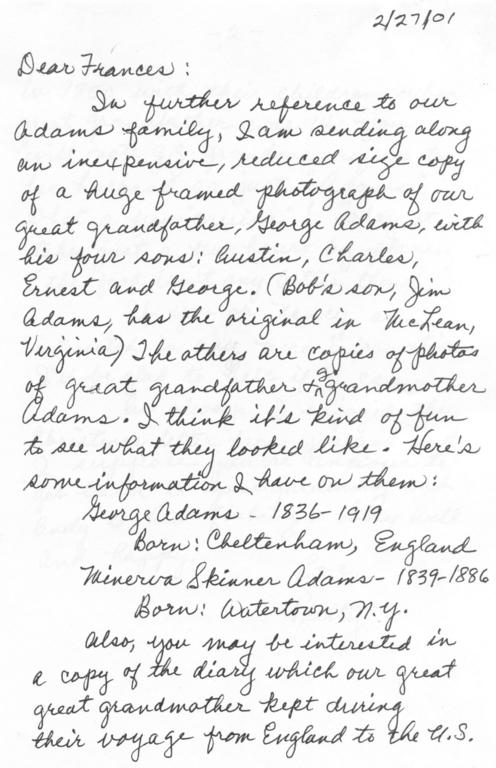 2/27/01
Dear Frances:
In further reference to our
Adams family, I am sending along
an inexpensive, reduced size copy
of a huge framed photograph of our
great grandfather, George Adams, with
his four sons: Austin, Charles,
Ernest and George. (Bob's son, Jim
Adams, has the original in McLean,
Virginia) The others are copies of photos
of great grandfather & g grandmother
Adams. I think it's kind of fun
to see what they looked like. Here's
some information I have on them:
George Adams - 1836-1919
Born: Cheltenham, England
Minerva Skinner Adams - 1839-1886
Born: Watertown, N.Y.
Also, you may be interested in
a copy of the diary which our great
great grandmother kept during
their voyage from England to the U.S.